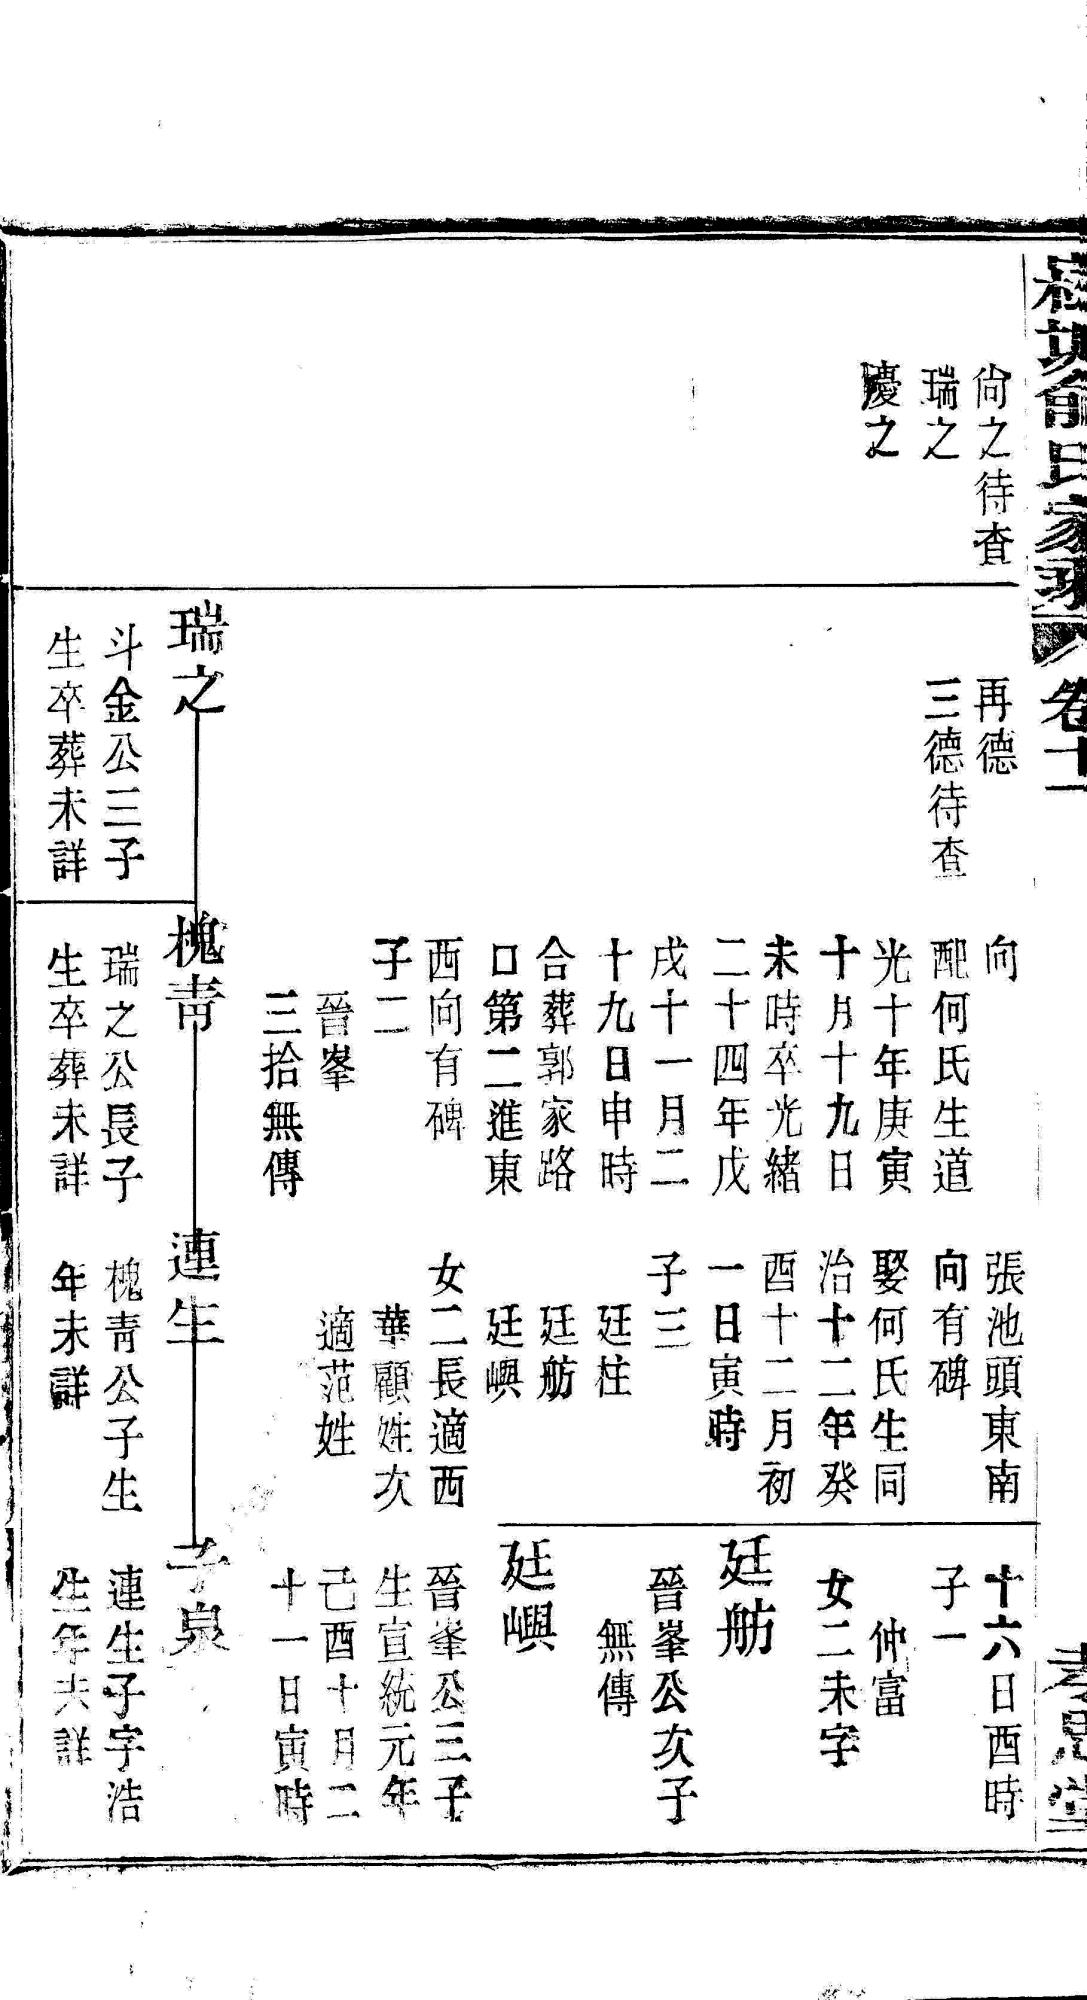 氏家
卷十一
尙之待查
瑞之
慶之
再德
三德待查
向
配何氏生道
光十年庚寅
十月十九日
未時卒光緒
二十四年戊
戌十一月二
十九日申時
合葬郭家路
口第二進東
西向有碑
子二
晉峯
三拾無傳
張池頭東南
向有碑
娶何氏生同
治十二年癸
酉十二月初
一日寅時
子三
廷柱
廷舫
廷嶼
女二長適西
華顧姓次
適范姓
十六日酉時
子一
仲富
女二未字
廷舫
晉峯公次子
無傳
廷嶼
晉峯公三子
生宣統元年
己酉十月二
十一日寅時
瑞之
斗金公三子
生卒葬未詳
槐靑
瑞之公長子
生卒葬未詳
連生
槐靑公子生
年未詳
子泉
連生子字浩
生年未詳
孝思堂